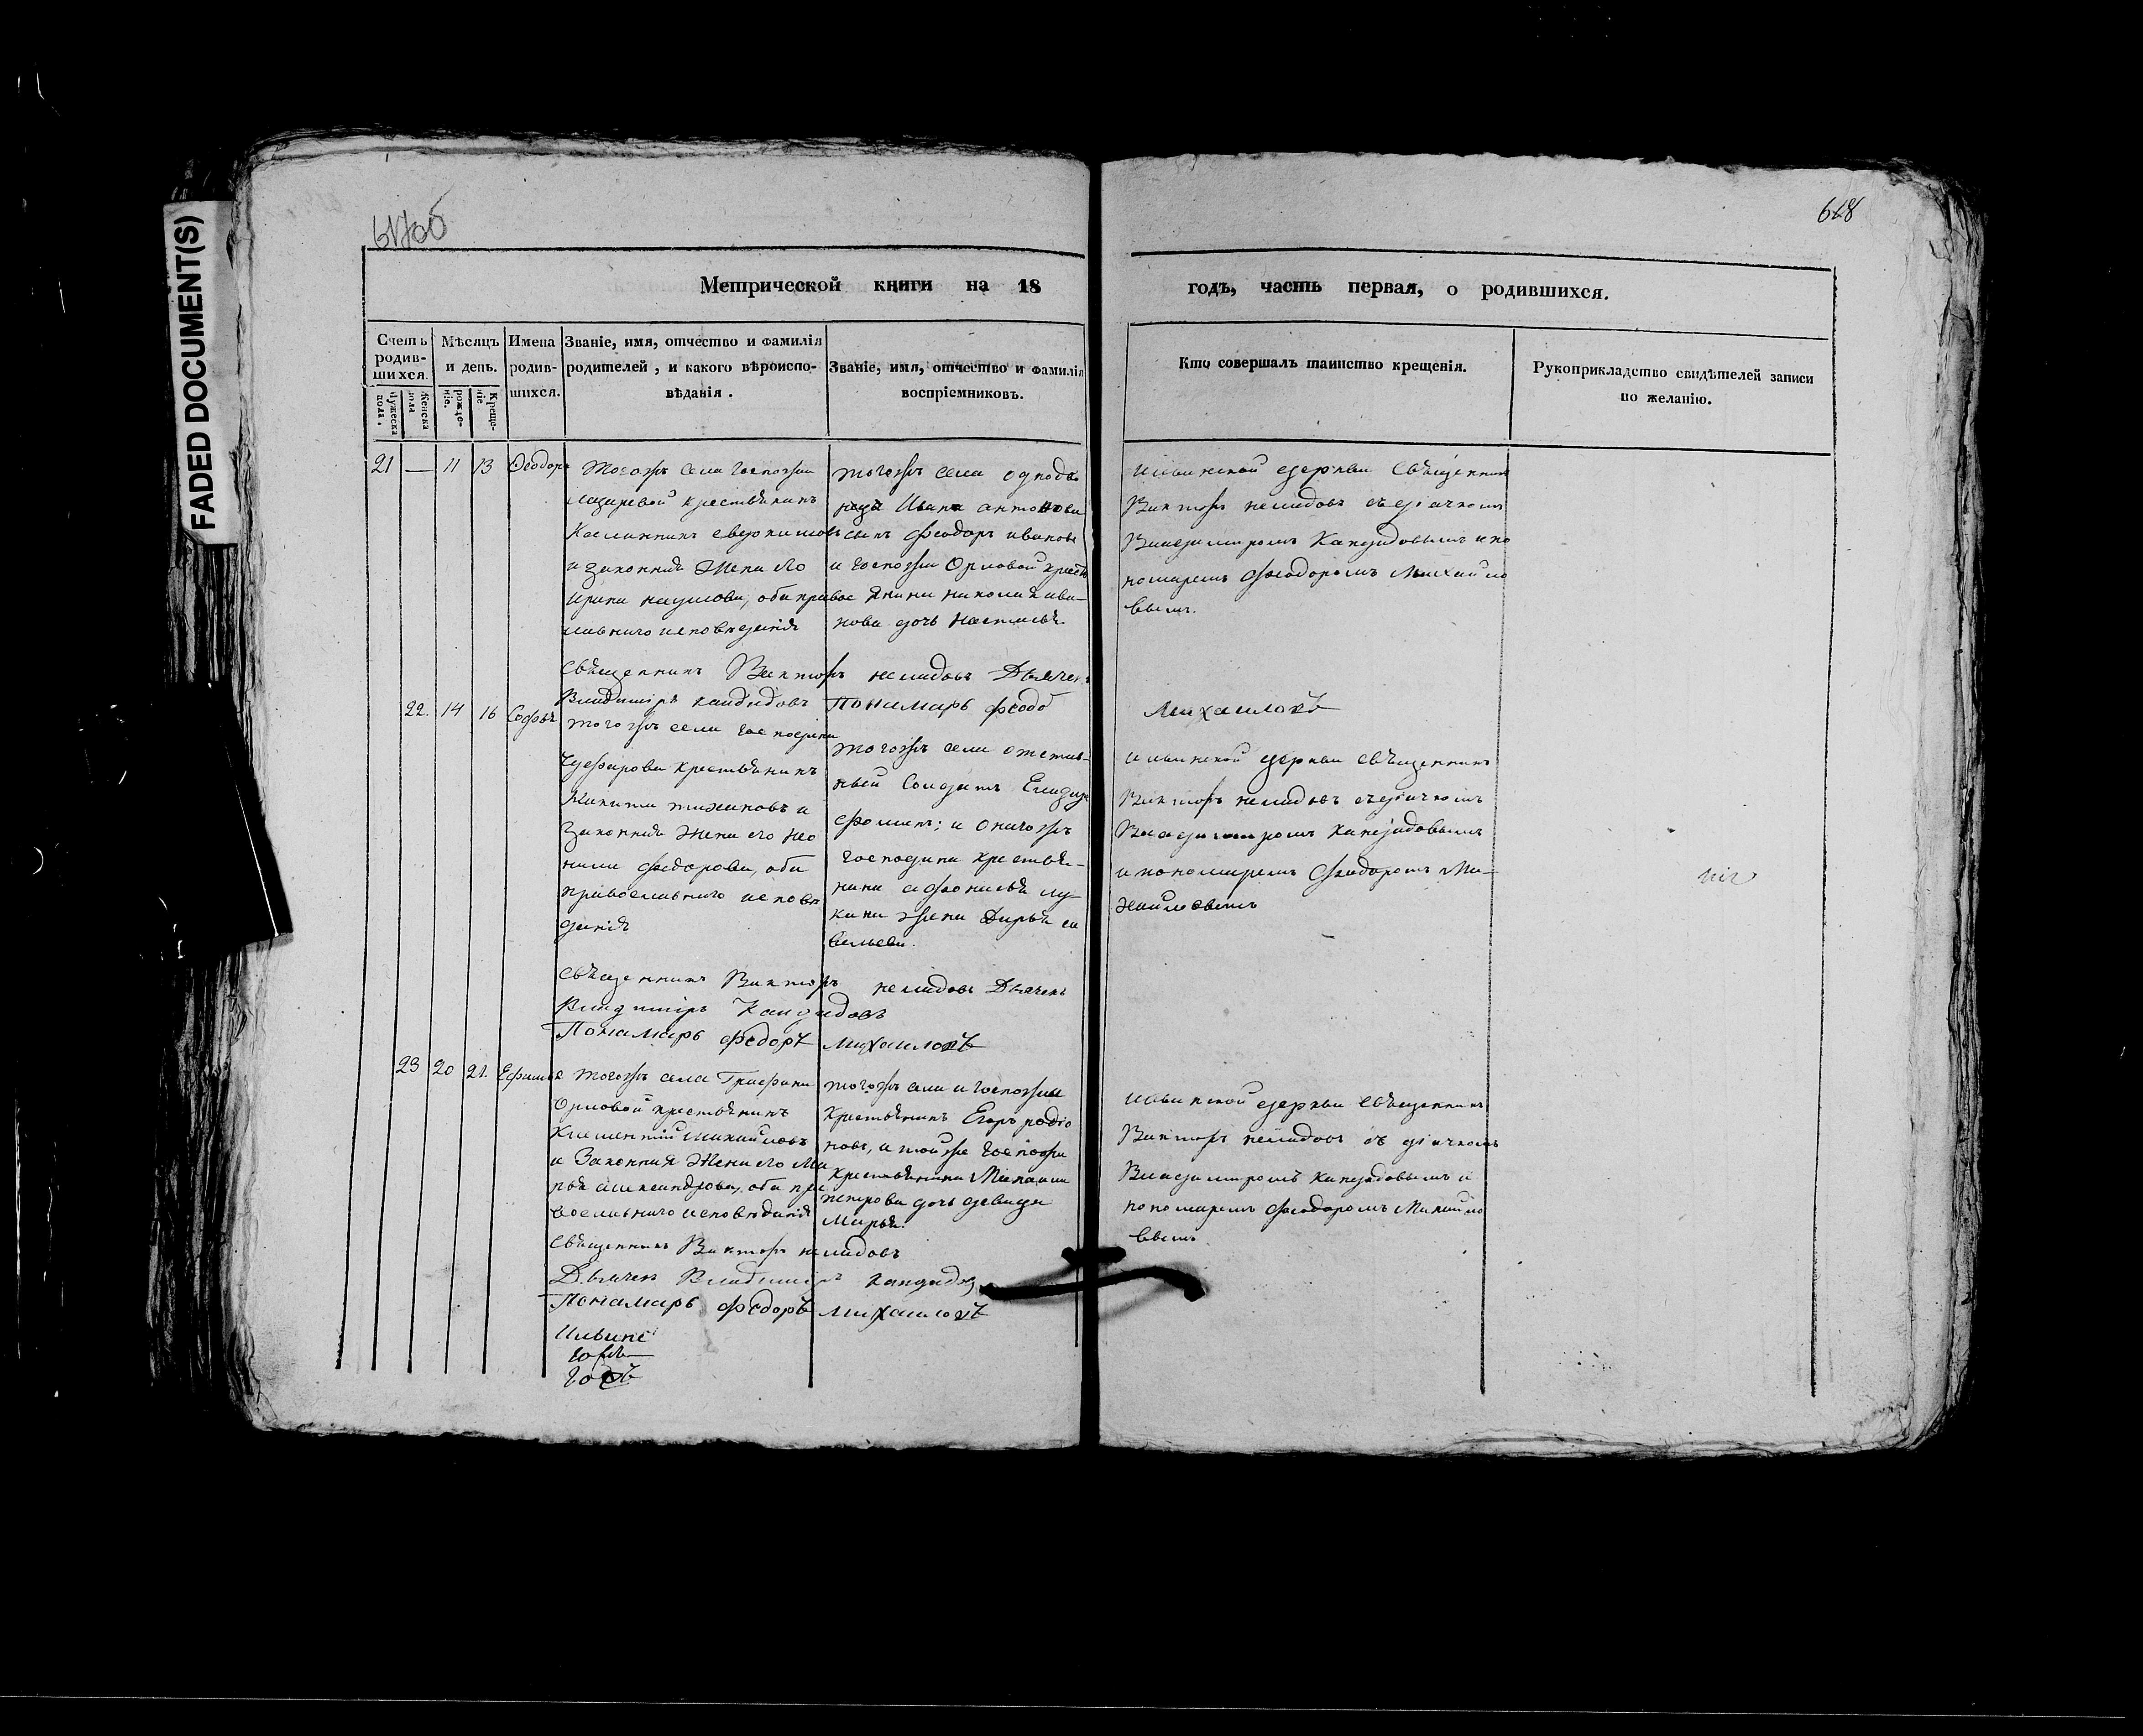 FADED DOCUMENT(S)
618
Метрической книги на 18
годъ, часть первая, о родившихся.
Счетъ родив-шихся.
Мужеска пола.
Женска пола
Мѣсяцъ и день.
рожде-ніе.
Креще-ніе
Имена родив-шихся.
Званіе, имя, отчество и фамилія родителей, и какого вѣроиспо-вѣданія.
Званіе, имя, отчество и фамилія воспріемниковъ.
Кто совершалъ таинство крещенія.
Рукоприкладство свидѣтелей записи по желанію.
21 — 11 13 Ѳеодоръ
тогожъ села госпожи
крестьянинъ
и законная жена его
Ирина наумова, оба право
славнаго исповѣданія
тогожъ села одно
Ивана антонова
сынъ Феодоръ иванов
и госпожи Орловой крестья
янина николая ива-
нова дочь настасья
церкви Священникъ
Викторъ нелидовъ съ дьячкомъ
Владимиромъ Кандидовымъ и по
номаремъ Феодоромъ Михайло
вымъ.
священникъ Викторъ нелидовъ Дьячекъ
Владимиръ кандидовъ Понамарь федо
Михаиловъ
22. 14 16 Софья
тогожъ села господина
крестьянинъ
Никита тихановъ и
законная жена его нео
нила федорова, оба
православнаго исповѣ
данія
тогожъ села отстав-
ный Солдатъ
Фоминъ; и онагожъ
господина крестья-
нина афонасья лу-
кина жена Дарья са
вельева.
церкви священникъ
Викторъ нелидовъ съ дьячкомъ
Владимиромъ кандидовымъ
и пономаремъ Феодоромъ Ми-
хайловымъ
священникъ Викторъ нелидовъ Дьячекъ
Владимиръ Кандидовъ
Понамарь федоръ михаиловъ
23 20 21. Ефимья
тогожъ села Графини
Орловой крестьянинъ
Климентий михайловъ
и Законная жена его Ма
рья александрова, оба пра
вославнаго исповѣданія
тогожъ села и госпожи
крестьянинъ Егоръ родіо
новъ, и тойже госпожи
крестьянина Михаила
петрова дочь девица
Марья.
церкви Священникъ
Викторъ нелидовъ съ дьячкомъ
Владимиромъ кандидовымъ и
пономаремъ Феодоромъ Михайло
вымъ
священникъ Викторъ нелидовъ
Дьячекъ Владимиръ кандидов
Понамарь федоръ михаиловъ